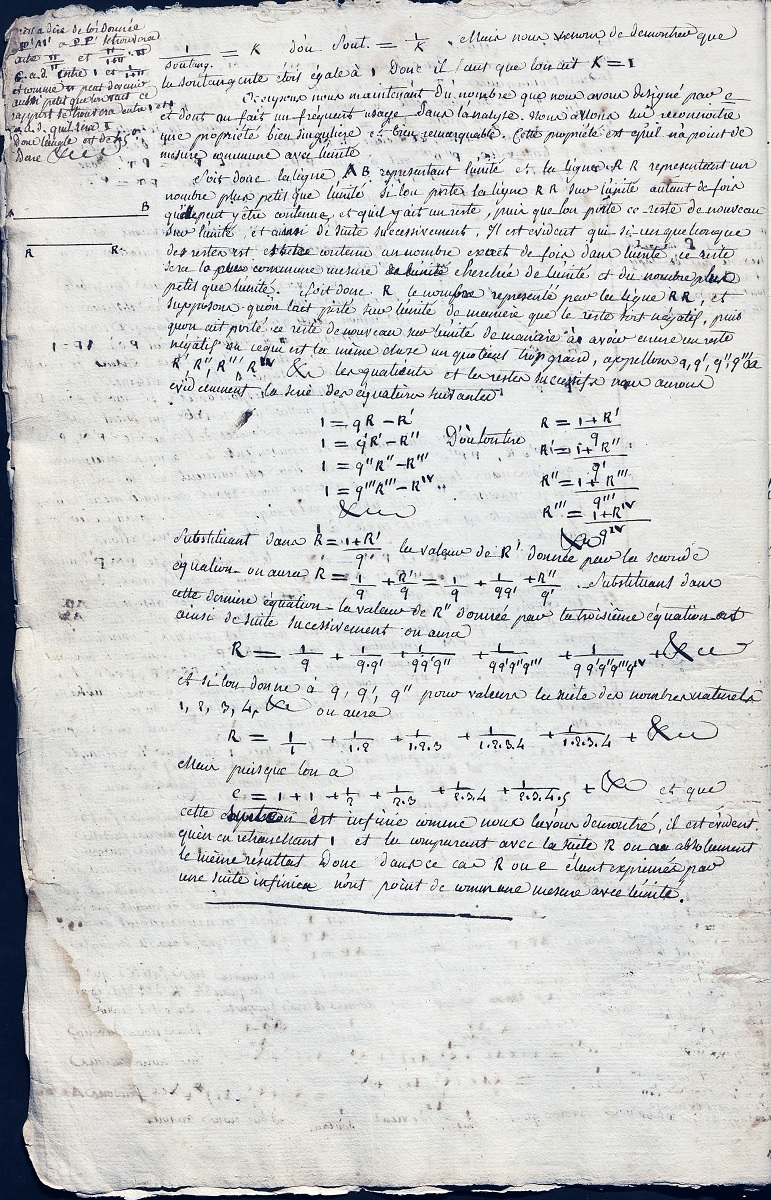 c'est a dire de loi donnée
entre π et
C. a. d. entre 1 et
et comme π peut devenir
aussi petit que l'on rapport se trouvera entre 1 et
c. a. d. qu'il sera 1
donc l'angle est de 45°
Donc &c
1/soutang. = K d'où sout. = 1/K. Mais nous venons de demontrer que
la soutangente étoit égale à 1 Donc il faut que l'on ait K = 1
Occupons nous maintenant du nombre que nous avons designé par e
et dont on fait un fréquent usage dans l'analyse. Nous allons lui reconnoitre
une propriété bien singuliere et bien remarquable. Cette propriété est qu'il n'a point de
mesure commune avec l'unité
Soit donc la ligne AB representant l'unité et la ligne RR representant un
nombre plus petit que l'unité si l'on porte la ligne RR sur l'unité autant de fois
qu'elle peut y être contenue, et qu'il y ait un reste, puis que l'on porte ce reste de nouveau
sur l'unité, et ainsi de suite successivement, Il est évident que si un quelconque
des restes est contenu un nombre exact de fois dans l'unité, ce reste
sera la commune mesure cherchée de l'unité et du nombre plus
petit que l'unité. Soit donc R le nombre représenté par la ligne RR, et
supposons qu'on l'ait porté sur l'unité de maniere que le reste soit négatif, puis
qu'on ait porté ce reste de nouveau sur l'unité de maniere à avoir encore un reste
négatif ou ce qui est la même chose un quotient trop grand, appellons q, q', q'', q''' &c
R', R'', R''', Rᴵⱽ &c les quotients et les restes successifs nous aurons
evidemment la serie des équations suivantes
A B
R R
1 = qR − R' R = 1+R'/q
1 = q'R' − R'' D'où l'on tire R' = 1+R''/q'
1 = q''R'' − R''' R'' = 1+R'''/q'''
1 = q'''R''' − Rᴵⱽ R''' = 1+Rᴵⱽ/qᴵⱽ
&c &c
Substituant dans R = 1+R'/q' la valeur de R' donnée par la seconde
équation on aura R = 1/q + R'/q = 1/q + 1/qq' + R''/q'. Substituant dans
cette derniere équation la valeur de R'' donnée par la troisième équation et
ainsi de suite successivement on aura
R = 1/q + 1/q.q' + 1/qq'q'' + 1/qq'q''q''' + 1/qq'q''q'''qᴵⱽ + &c
et si l'on donne à q, q', q'' pour valeurs la suite des nombres naturels
1, 2, 3, 4, &c on aura
R = 1/1 + 1/1.2 + 1/1.2.3 + 1/1.2.3.4 + 1/1.2.3.4 + &c
Mais puisque l'on a
e = 1 + 1 + 1/2 + 1/2.3 + 1/2.3.4 + 1/2.3.4.5 + &c et que
cette est infinie comme nous l'avons demontré, il est évident
qu'en en retranchant 1 et la comparant avec la suite R on a absolument
le même résultat Donc dans ce cas R ou e étant exprimés par
une suite infinie n'ont point de commune mesure avec l'unité.